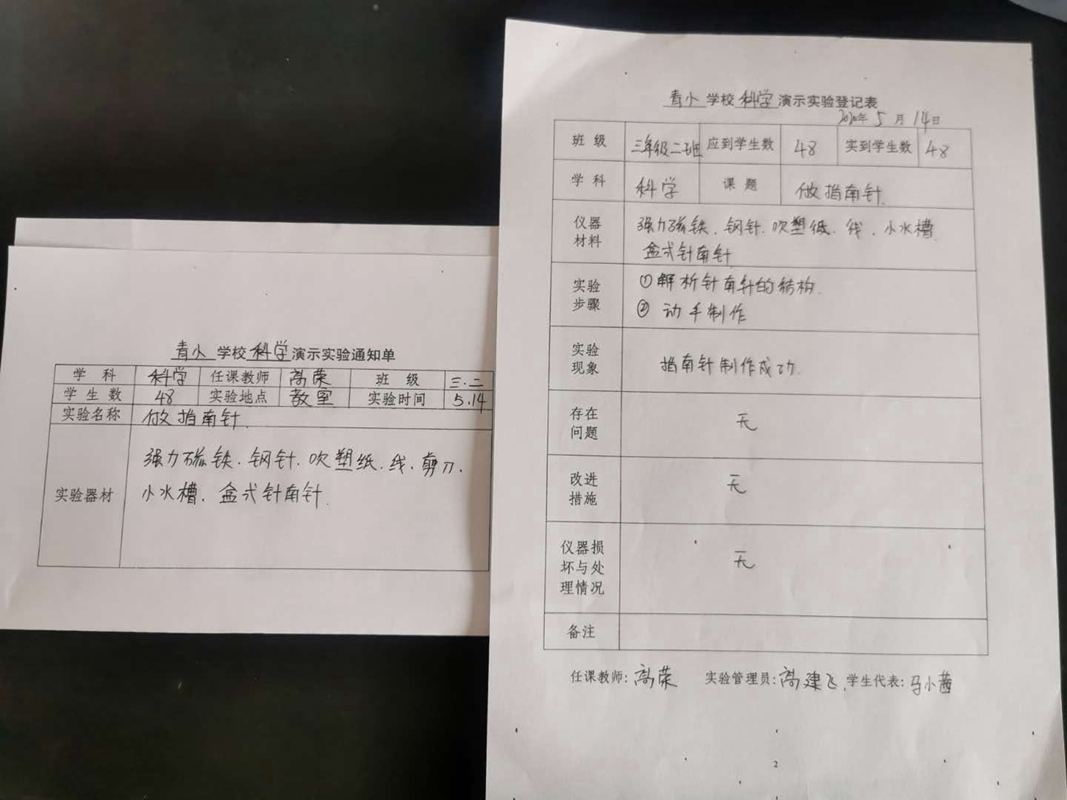 青小学校科学演示实验通知单
学科 科学 任课教师 高荣 班级 三.二
学生数 48 实验地点 教室 实验时间 5.14
实验名称 做指南针
实验器材 强力磁铁.钢针.吹塑纸.线.剪刀.
小水槽.盒式针南针.
青小学校科学演示实验登记表
2020年5月14日
班级 三年级二班 应到学生数 48 实到学生数 48
学科 科学 课题 做指南针.
仪器材料 强力磁铁.钢针.吹塑纸.线.小水槽.
盒式针南针
实验步骤 ①解析针南针的结构.
②动手制作
实验现象 指南针制作成功.
存在问题 无
改进措施 无
仪器损坏与处理情况 无
备注
任课教师:高荣 实验管理员:高建飞.学生代表:马小茜
2